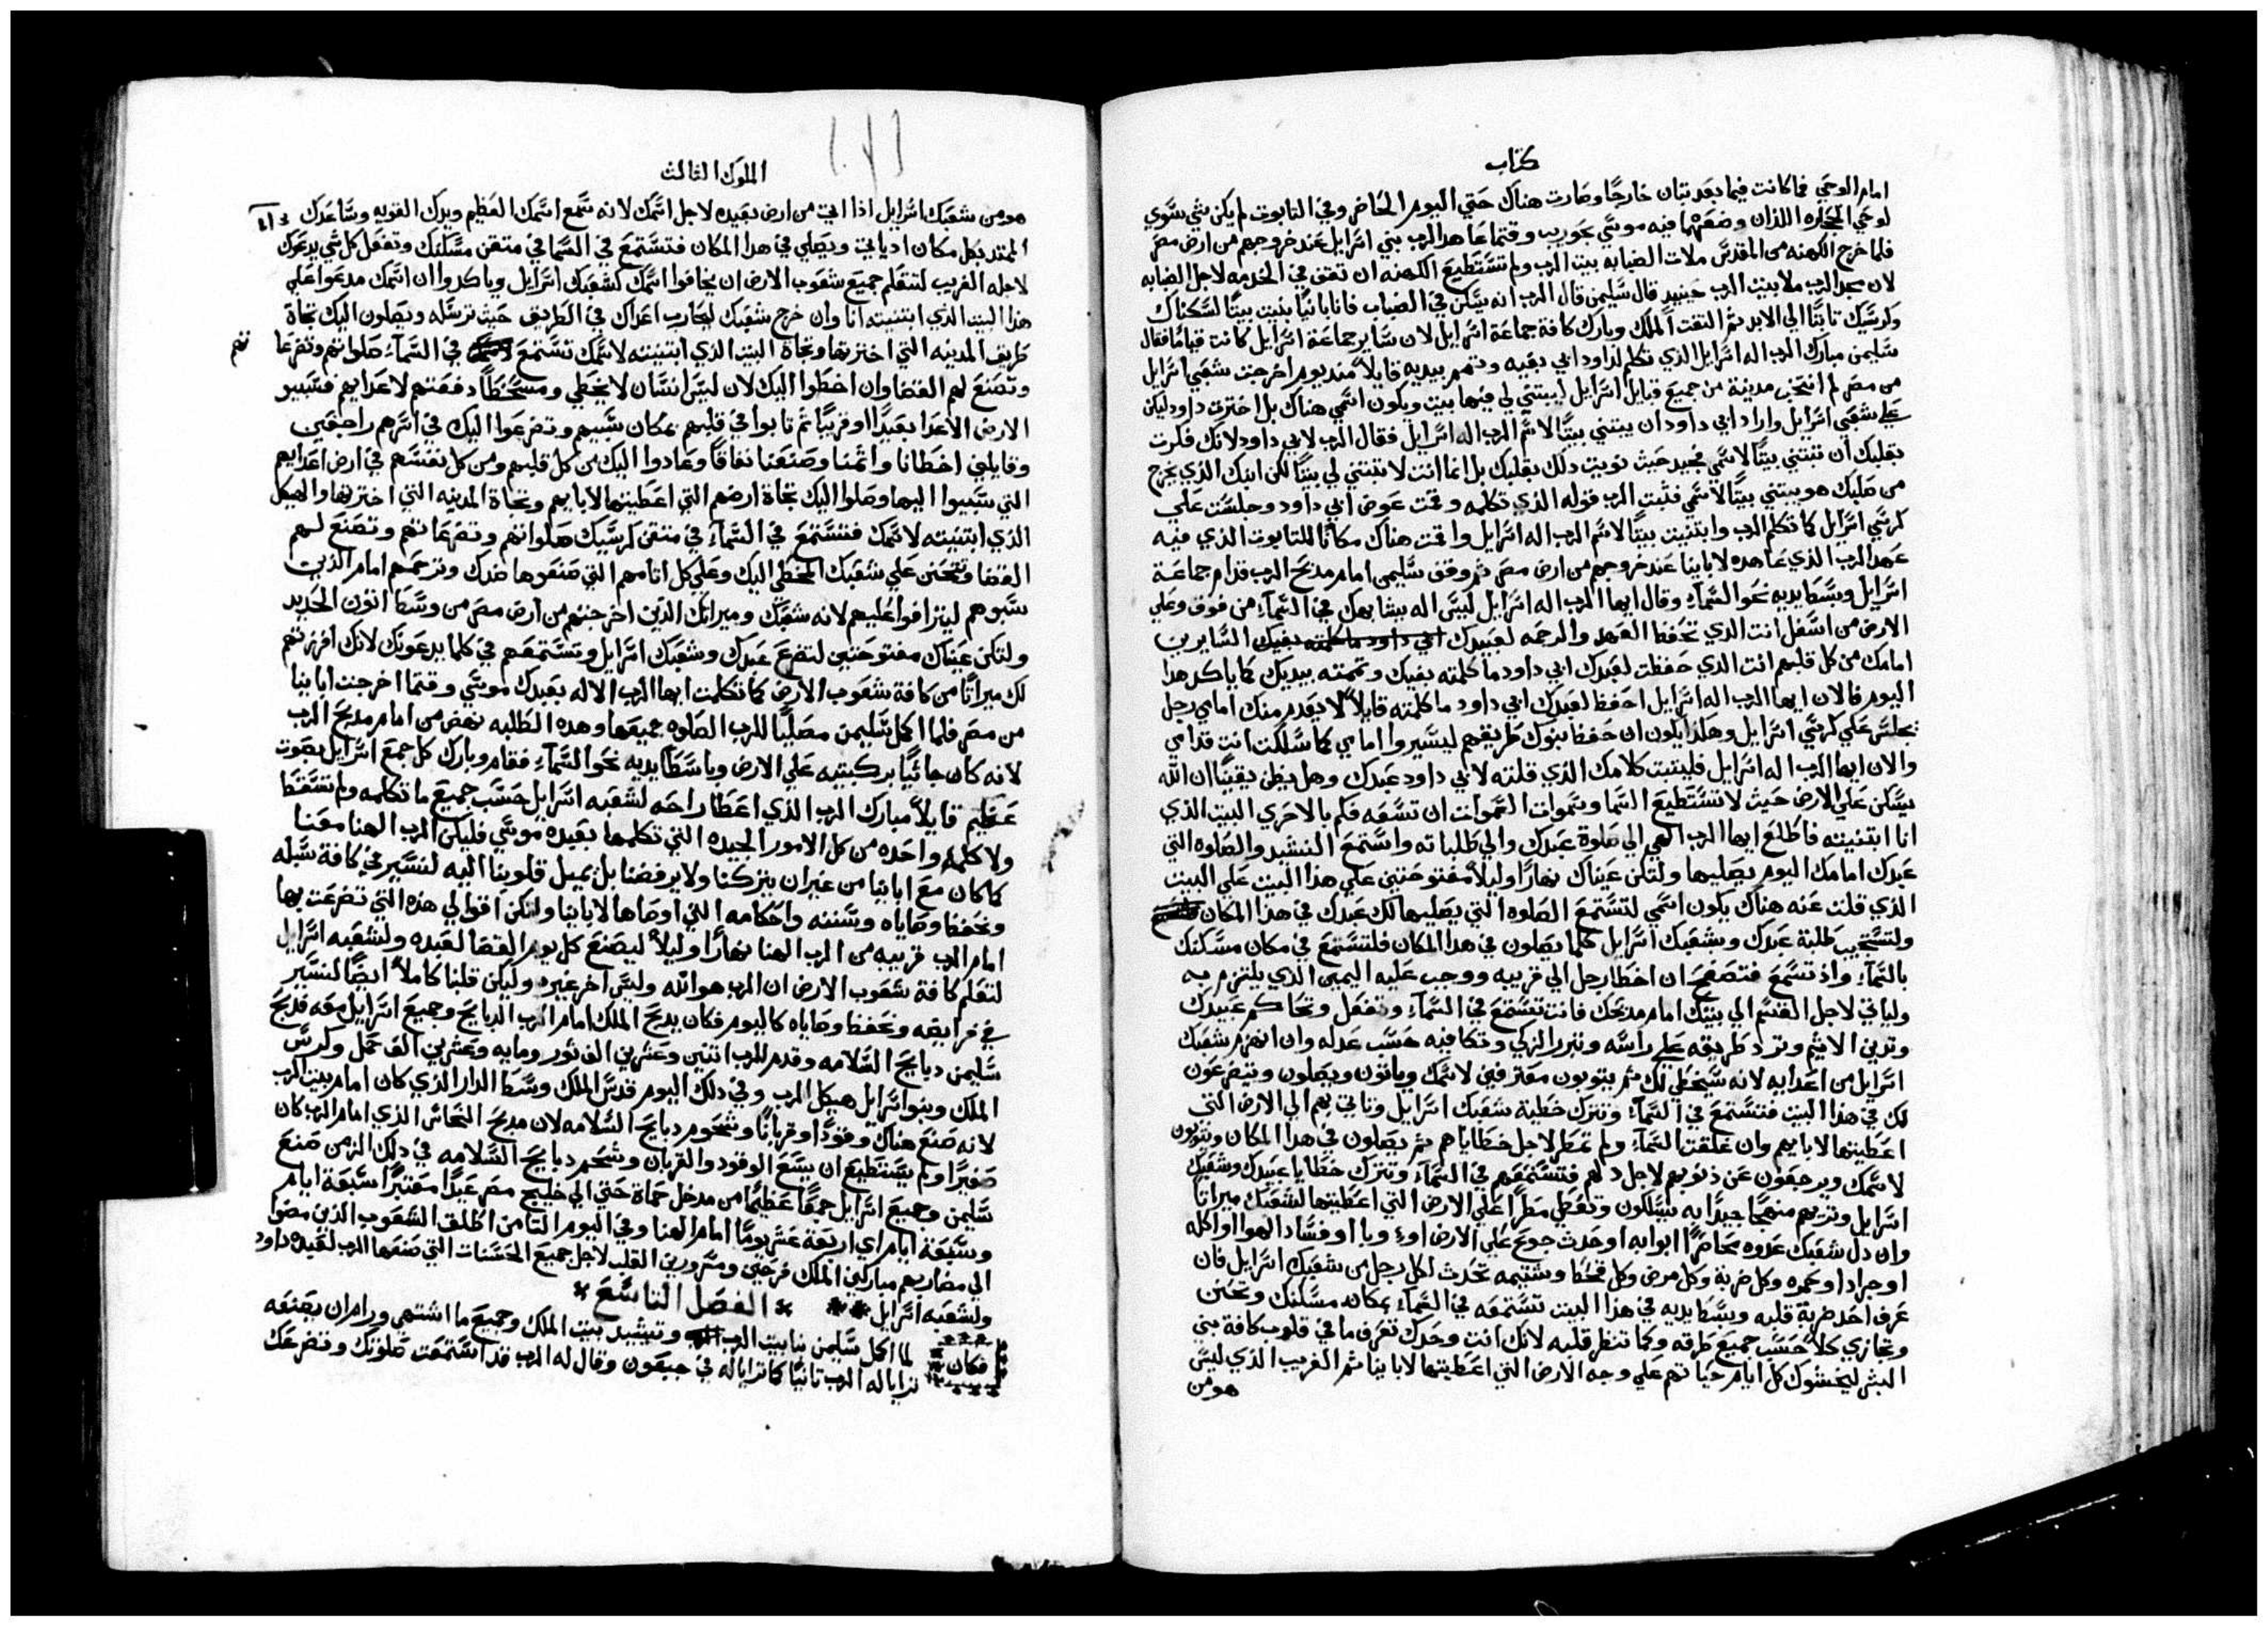 كتاب
امام الوحي فما كانت فيما بعد تبان خارجًا وصارت هناك حتي اليوم الحاضر وفي التابوت لم يكن شي سوي
لوحي الحجاره اللذان وضعهما فيه موسي بحوريب وقتما عاهد الرب بني اسرايل عند خروجهم من ارض مصر
فلما خرج الكهنه من المقدس ملات الضبابه بيت الرب ولم تستطيع الكهنه ان تقف في الخدمه لاجل الضبابه
لان مجد الرب ملا بيت الرب حينيد قال سليمن قال الرب انه يسكن في الضباب فانا بانيًا بنيت بيتًا لسكناك
وكرسيك تابتًا الي الابد ثم التفت الملك وبارك كافة جماعة اسرايل لان ساير جماعة اسرايل كانت قيامًا فقال
سليمن مبارك الرب اله اسرايل الذي تكلم لداود ابي بفيه وتمم بيديه قايلاً مند يوم اخرجت شعبي اسرايل
من مصر لم انتخب مدينة من جميع قبايل اسرايل ليبتني لي فيها بيت ويكون اسمي هناك بل اخترت داود ليكن
علي شعبي اسرايل واراد ابي داود ان يبتني بيتًا لاسم الرب اله اسرايل فقال الرب لابي داود لانك فكرت
بقلبك ان تبتني بيتًا لاسمي فجيد حيث نويت دلك بقلبك بل انما انت لا تبتني لي بيتًا لكن ابنك الذي يخرج
من صلبك هو يبتني بيتًا لاسمي فثبت الرب قوله الذي تكلمه وقمت عوض ابي داود وجلست علي
كرسي اسرايل كما تكلم الرب وابتنيت بيتًا لاسم الرب اله اسرايل واقمت هناك مكانًا للتابوت الذي فيه
عهد الرب الذي عاهده لابابنا عند خروجهم من ارض مصر ثم وقف سليمن امام مدبح الرب قدام جماعة
اسرايل وبسط يديه نحو السماء وقال ايها الرب اله اسرايل ليس اله يشابهك في السماء من فوق وعلي
الارض من اسفل انت الذي تحفظ العهد والرحمه لعبيدك السايرين
امامك من كل قلبهم انت الذي حفظت لعبدك ابي داود ما كلمته بفيك وتممته بيديك كما ياكد هدا
اليوم فالان ايها الرب اله اسرايل احفظ لعبدك ابي داود ما كلمته قايلاً لا يعدم منك امامي رجل
يجلس علي كرسي اسرايل وهكدا يكون ان حفظ بنوك طريقهم ليسيروا امامي كما سلكت انت قدامي
والان ايها الرب اله اسرايل فليتبت كلامك الذي قلته لابي داود عبدك وهل يظن يقينًا ان الله
يسكن علي الارض حيث لا تستطيع السما وسموات السموات ان تسعه فكم بالاحري البيت الذي
انا ابتنيته فاطلع ايها الرب الهي الي صلوة عبدك والي طلباته واستمع النشيد والصلوه التي
عبدك امامك اليوم يصليها ولتكن عيناك نهارًا وليلاً مفتوحتين علي هذا البيت علي البيت
الذي قلت عنه هناك يكون اسمي لتستمع الصلوه التي يصليها لك عبدك في هدا المكان
ولتستجيب طلبة عبدك وشعبك اسرايل كلما يصلون في هدا المكان فلتستمع في مكان مسكنك
بالسماء واذ تسمع فتصفح ان اخطا رجل الي قريبه ووجب عليه اليمين الذي يلتزم به
ولياتي لاجل القسم الي بيتك امام مدبحك فانت تستمع في السماء وتفعل وتحاكم عبيدك
وتدين الاثيم وترد طريقه علي راسه وتبرر الزكي وتكافيه حسب عدله وان انهزم شعبك
اسرايل من اعدايه لانه سيخطي لك ثم يتوبون معترفين لاسمك وياتون ويصلون ويتضرعون
لك في هذا البيت فتستمع في السماء وتترك خطية شعبك اسرايل وتاتي بهم الي الارض التي
اعطيتها لابايهم وان غلقت السماء ولم تمطر لاجل خطاياهم ثم يصلون في هدا المكان ويتوبون
لاسمك ويرجعون عن ذنوبهم لاجل دلهم فتستمعهم في السماء وتترك خطايا عبيدك وشعبك
اسرايل وتريهم منهجًا جيدًا به يسلكون وتعطي مطرًا علي الارض التي اعطيتها لشعبك ميراثًا
وان دل شعبك عدوه محاصرًا ابوابه او حدث جوع علي الارض او وبا او فساد الهوا او اكله
او جراد او حمره وكل ضربة وكل مرض وكل قحط وشتيمه تحدث لكل رجل من شعبك اسرايل فان
عرف احد ضربة قلبه وبسط يديه في هذا البيت تستمعه في السماء بمكان مسكنك وتحنن
وتجازي كلاً حسب جميع طرقه وكما تنظر قلبه لانك انت وحدك تعرف ما في قلوب كافة بني
البشر ليخشوك كل ايام حياتهم علي وجه الارض التي اعطيتها لابابنا ثم الغريب الذي ليس
هو من
الملوك الثالث
هو من شعبك اسرايل اذا اتي من ارض بعيده لاجل اسمك لانه سمع اسمك العظيم ويدك القويه وساعدك
الممتد بكل مكان اذ ياتي ويصلي في هدا المكان فتستمع في السما في متقن مسكنك وتفعل كل شي يدعوك
لاجله الغريب لتتعلم جميع شعوب الارض ان يخافوا اسمك كشعبك اسرايل وياكدوا ان اسمك مدعوا علي
هذا البيت الذي ابتنيته انا وان خرج شعبك ليحارب اعداك في الطريق حيث ترسله ويصلون اليك تجاة
طريق المدينه التي اخترتها وتجاة البيت الذي ابتنيته لاسمك تستمع في السماء صلواتهم وتضرعا
تهم
وتصنع لهم القضا وان اخطوا اليك لان ليس انسان لا يخطي ومسخطًا دفعتهم لاعدايهم فسبيو
الارض الاعدا بعيدًا او قريبًا ثم تابوا في قلبهم بمكان سبيهم وتضرعوا اليك في اسرهم راجعين
وقايلين اخطانا واثمنا وصنعنا نفاقًا وعادوا اليك من كل قلبهم ومن كل نفسهم في ارض اعدايهم
التي سبيوا اليها وصلوا اليك تجاة ارضهم التي اعطيتها لابايهم وتجاة المدينه التي اخترتها والهيكل
الذي ابتنيته لاسمك فتستمع في السماء في متقن كرسيك صلواتهم وتضرعاتهم وتصنع لهم
القضا وتتحنن علي شعبك المخطي اليك وعلي كل اثامهم التي صنعوها ضدك وترحمهم امام الذين
سبوهم ليترافوا عليهم لانه شعبك وميراثك الذين اخرجتهم من ارض مصر من وسط اتون الحديد
ولتكن عيناك مفتوحتين لتضرع عبدك وشعبك اسرايل وتستمعهم في كلما يدعونك لانك افرزتهم
لك ميراثًا من كافة شعوب الارض كما تكلمت ايها الرب الاله بعبدك موسي وقتما اخرجت ابابنا
من مصر فلما اكمل سليمن مصليًا للرب الصلوه جميعها وهده الطلبه نهض من امام مدبح الرب
لانه كان جاثيًا بركبتيه علي الارض وباسطًا يديه نحو السماء فقام وبارك كل جمع اسرايل بصوت
عظيم قايلاً مبارك الرب الذي اعطا راحه لشعبه اسرايل حسب جميع ما تكلمه ولم تسقط
ولا كلمة واحده من كل الامور الجيده التي تكلمها بعبده موسي فليكن الرب الهنا معنا
كما كان مع ابابنا من غير ان يتركنا ولا يرفضنا بل يميل قلوبنا اليه لنسير في كافة سبله
ونحفظ وصاياه وسننه واحكامه التي اوصاها لابابنا ولتكن اقوالي هذه التي تضرعت بها
امام الرب قريبه من الرب الهنا نهارًا وليلاً ليصنع كل يوم القضا لعبده ولشعبه اسرايل
لتعلم كافة شعوب الارض ان الرب هو الله وليس اخر غيره وليكن قلبنا كاملاً ايضًا لنسير
في فرايضه ونحفظ وصاياه كاليوم فكان يدبح الملك امام الرب الدبايح وجميع اسرايل معه فدبح
سليمن دبايح السلامه وقدم للرب اتنين وعشرين الف ثور ومايه وعشرين الف حمل وكرس
الملك وبنو اسرايل هيكل الرب وفي دلك اليوم قدس الملك وسط الدار الذي كان امام بيت الرب
لانه صنع هناك وقودًا وقربانًا وشحوم دبايح السلامه لان مدبح النحاس الذي امام الرب كان
صغيرًا ولم يستطيع ان يسع الوقود والقربان وشحم دبايح السلامه في دلك الزمن صنع
سليمن وجميع اسرايل جمعًا عظيمًا من مدخل حماة حتي الي خليج مصر عيدًا معتبرًا سبعة ايام
وسبعة ايام اي اربعة عشر يومًا امام الهنا وفي اليوم التامن اطلق الشعوب الذين مضوا
الي مضاربهم مباركين الملك فرحين ومسرورين القلب لاجل جميع الحسنات التي صنعها الرب لعبده داود
ولشعبه اسرايل الفصل التاسع
فكان لما اكمل سليمن بنا بيت الرب وتشييد بيت الملك وجميع ما اشتهي ورام ان يصنعه
ترايا له الرب تانيًا كما ترايا له في جبعون وقال له الرب قد استمعت صلوتك وتضرعك